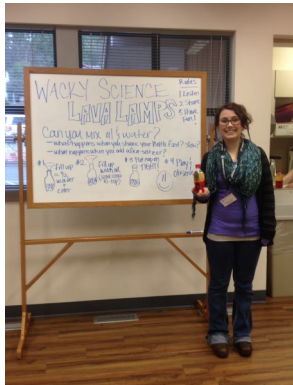 WACKY SCIENCE
LAVA LAMPS
Rules
1 Listen
2 Share
3 Have Fun!
Can you mix oil & water?
- what happens when you shake your bottle fast? Slow?
- what happens when you add alka seltzer?
#1 Fill up
water
+
color
#2 Fill up
with oil
#3
#4 Play &
observe